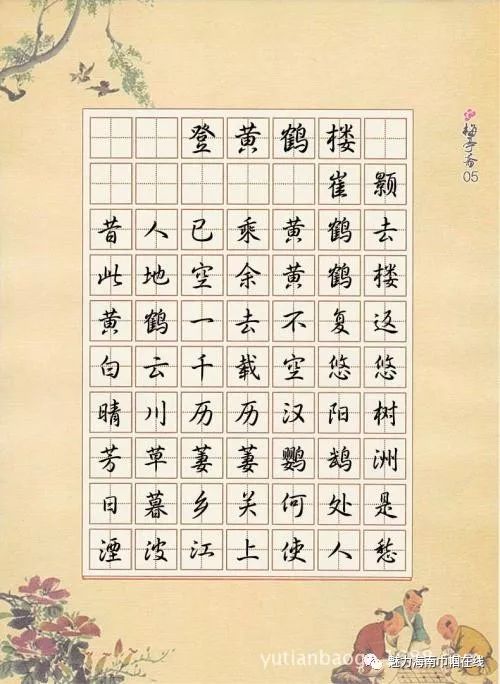 登黄鹤楼
崔颢
昔人已乘黄鹤去
此地空余黄鹤楼
黄鹤一去不复返
白云千载空悠悠
晴川历历汉阳树
芳草萋萋鹦鹉洲
日暮乡关何处是
煙波江上使人愁
梅亭斋05
魅力海南巾帼在线